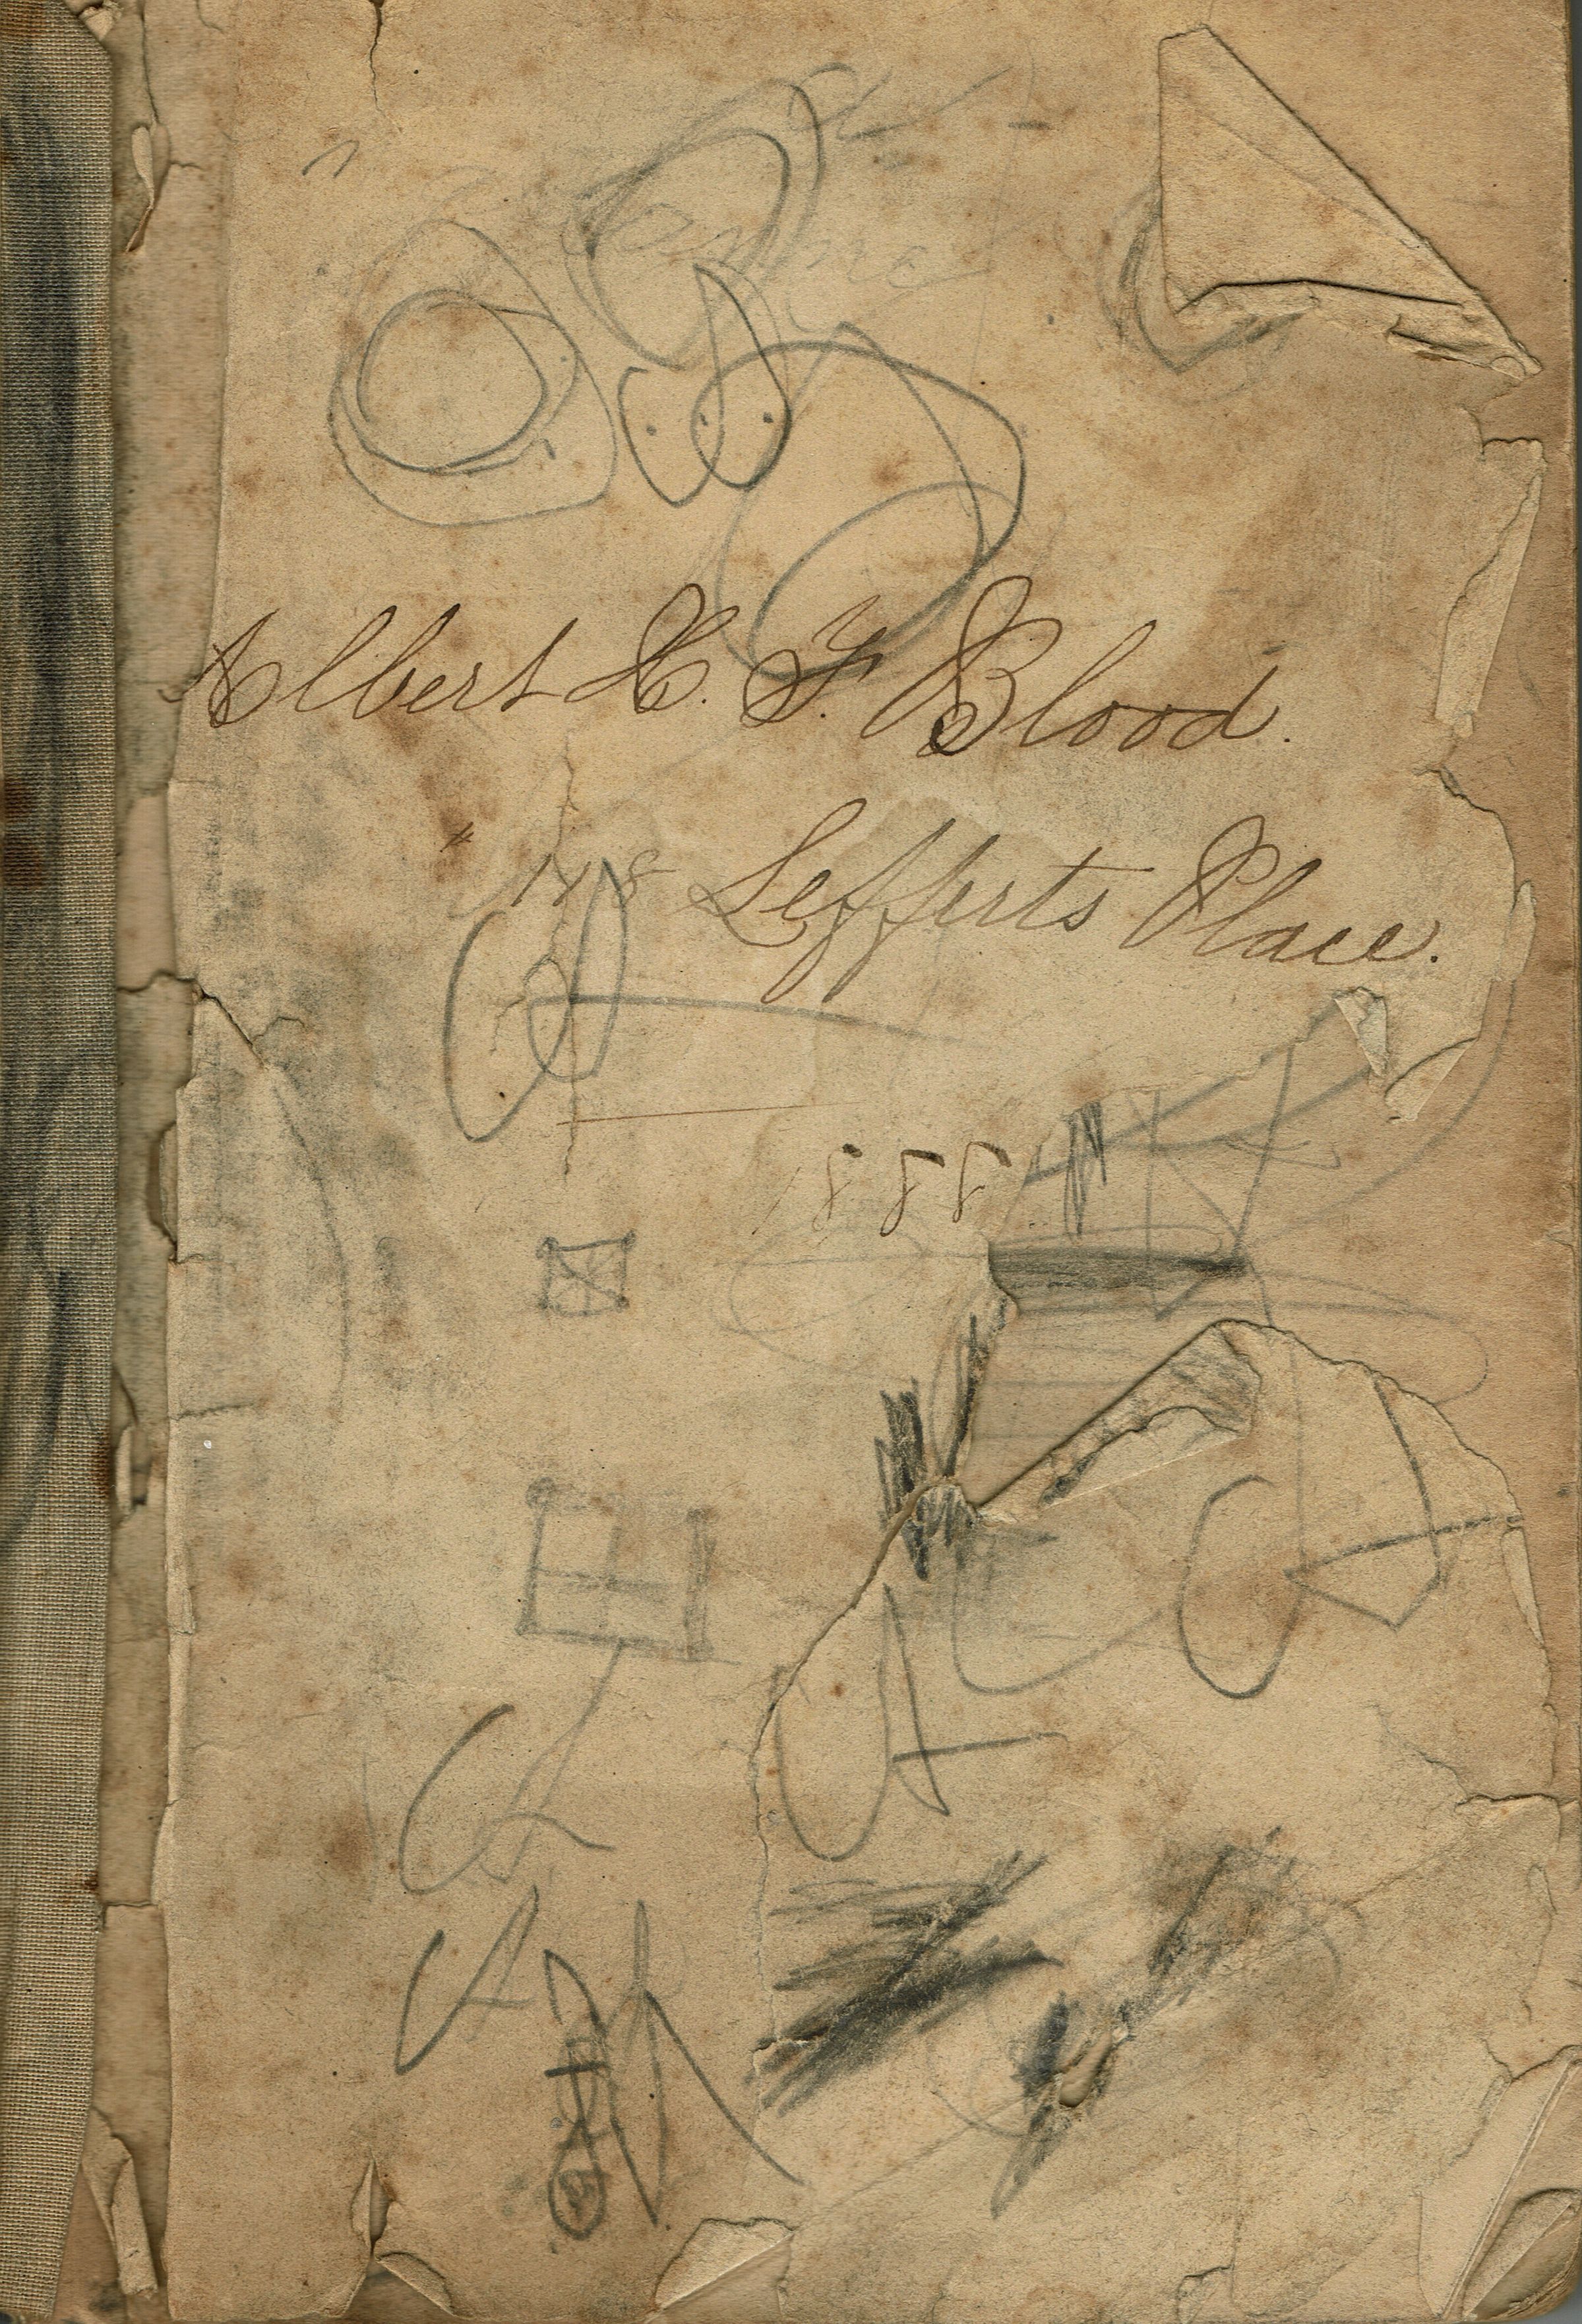 Albert H. F. Blood.
" 148 Lefferts Place.
1888